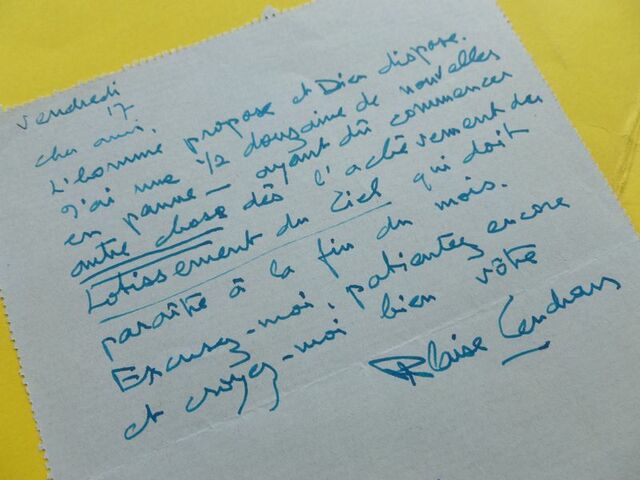 Vendredi
17
cher ami,
L'homme propose et Dieu dispose.
J'ai une 1/2 douzaine de nouvelles
en panne – ayant dû commencer
autre chose dès l'achèvement du
Lotissement du Ciel qui doit
paraître à la fin du mois.
Excusez-moi, patientez encore
et croyez-moi bien vôtre
Blaise Cendrars